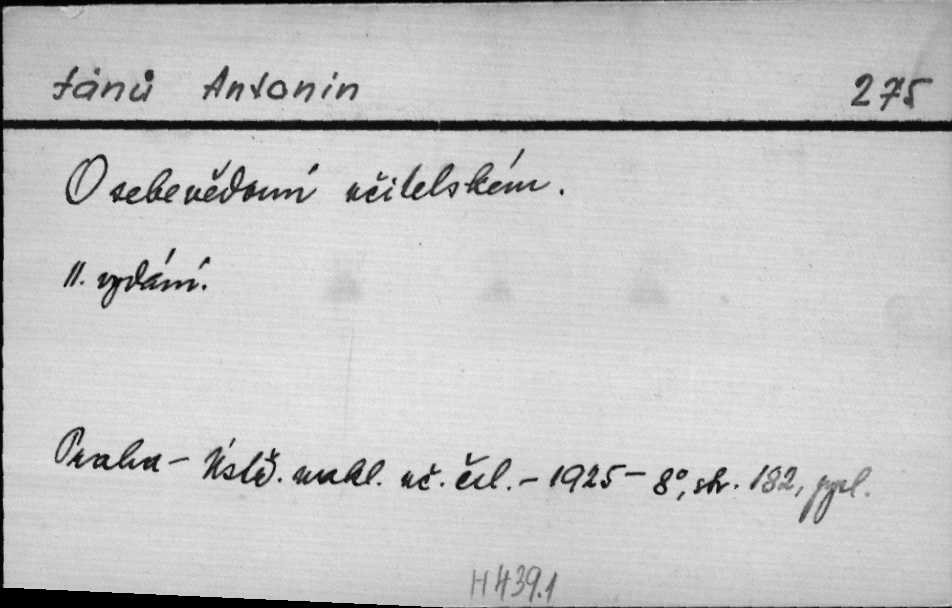 Janů Antonín 275
O sebevědomí učitelském.
II. vydání.
Praha – Ústř. nakl. uč. čsl. – 1925 – 8°, str. 182, ppl.
H 439.1